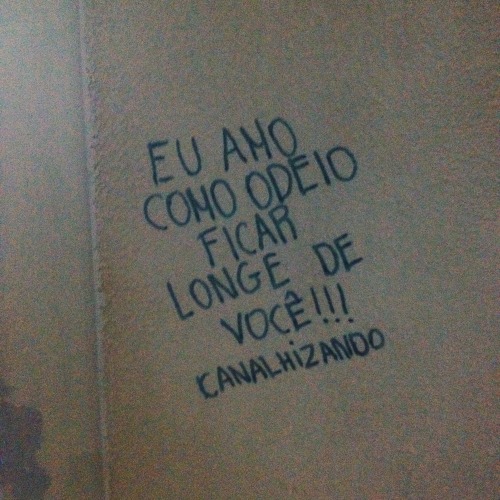 EU AMO
COMO ODEIO
FICAR
LONGE DE
VOCÊ!!!
CANALHiZANDO